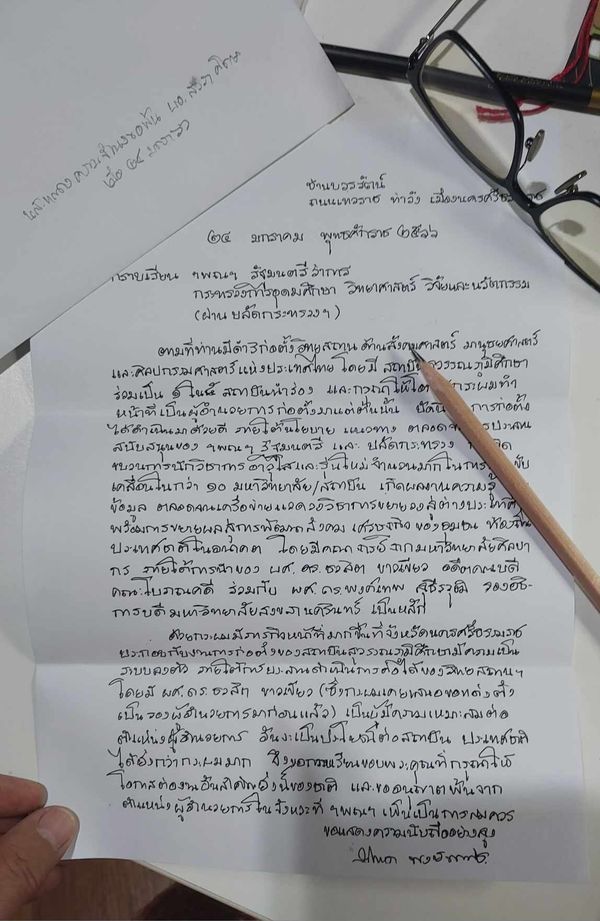 บ้านบวรรัตน์
ถนนเทวราช ท่าวัง เมืองนครศรีธรรมราช
๒๔ มกราคม พุทธศักราช ๒๕๖๖
กราบเรียน ฯพณฯ รัฐมนตรีว่าการ
กระทรวงการอุดมศึกษา วิทยาศาสตร์ วิจัยและนวัตกรรม
(ผ่าน ปลัดกระทรวงฯ)
ตามที่ท่านมีดำริก่อตั้งวิทยสถาน ด้านสังคมศาสตร์ มนุษยศาสตร์
และศิลปกรรมศาสตร์แห่งประเทศไทย โดยมี สถาบันสุวรรณภูมิศึกษา
ร่วมเป็น ๑ ใน ๕ สถาบันนำร่อง และกรุณาให้ กระผมทำ
หน้าที่เป็นผู้อำนวยการก่อตั้งมาแต่ต้นนั้น บัดนี้ การก่อตั้ง
ได้ดำเนินมาด้วยดี ภายใต้นโยบาย แนวทาง ตลอดจนการประสาน
สนับสนุนของ ฯพณฯ รัฐมนตรี และ ปลัดกระทรวง ตลอด
ขบวนการนักวิชาการ อาวุโสและรุ่นใหม่ จำนวนมากในการ ขับ
เคลื่อนในกว่า ๑๐ มหาวิทยาลัย/สถาบัน เกิดผลงานความรู้
ข้อมูล ตลอดจนเครือข่าย แวดวงวิชาการขยายวงสู่ต่างประเทศ
พร้อมการขยายผลสู่การพัฒนาสังคม เศรษฐกิจ ของชุมชน ท้องถิ่น
ประเทศชาติในอนาคต โดยมีคณาจารย์จากมหาวิทยาลัยศิลปา
กร ภายใต้การนำของ ผศ.ดร.ชวลิต ขาวเขียว อดีตคณบดี
คณะโบราณคดี ร่วมกับ ผศ.ดร.พงศ์เทพ สุธีรวุฒิ รองอธิ-
การบดี มหาวิทยาลัยสงขลานครินทร์ เป็นหลัก
ด้วยกระผมมีภารกิจหน้าที่มากขึ้นที่จังหวัดนครศรีธรรมราช
ประกอบกับงานการก่อตั้งของสถาบันสุวรรณภูมิศึกษามีความเป็น
ระบบลงตัว ภายใต้การประสานดำเนินการต่อได้ของวิทยสถานฯ
โดยมี ผศ.ดร.ชวลิต ขาวเขียว (ซึ่งกระผมเคยเสนอขอแต่งตั้ง
เป็นรองผู้อำนวยการมาก่อนแล้ว) เป็นผู้มีความเหมาะสมต่อ
ตำแหน่งผู้อำนวยการ อันจะเป็นประโยชน์ต่อสถาบัน ประเทศชาติ
ได้ยิ่งกว่ากระผมมาก จึงขอกราบเรียนขอบพระคุณที่กรุณาให้
โอกาสต่องานอันสำคัญยิ่งนี้ของชาติ และขออนุญาตพ้นจาก
ตำแหน่งผู้อำนวยการในจังหวะที่ ฯพณฯ เห็นเป็นการสมควร
ขอแสดงความนับถืออย่างสูง